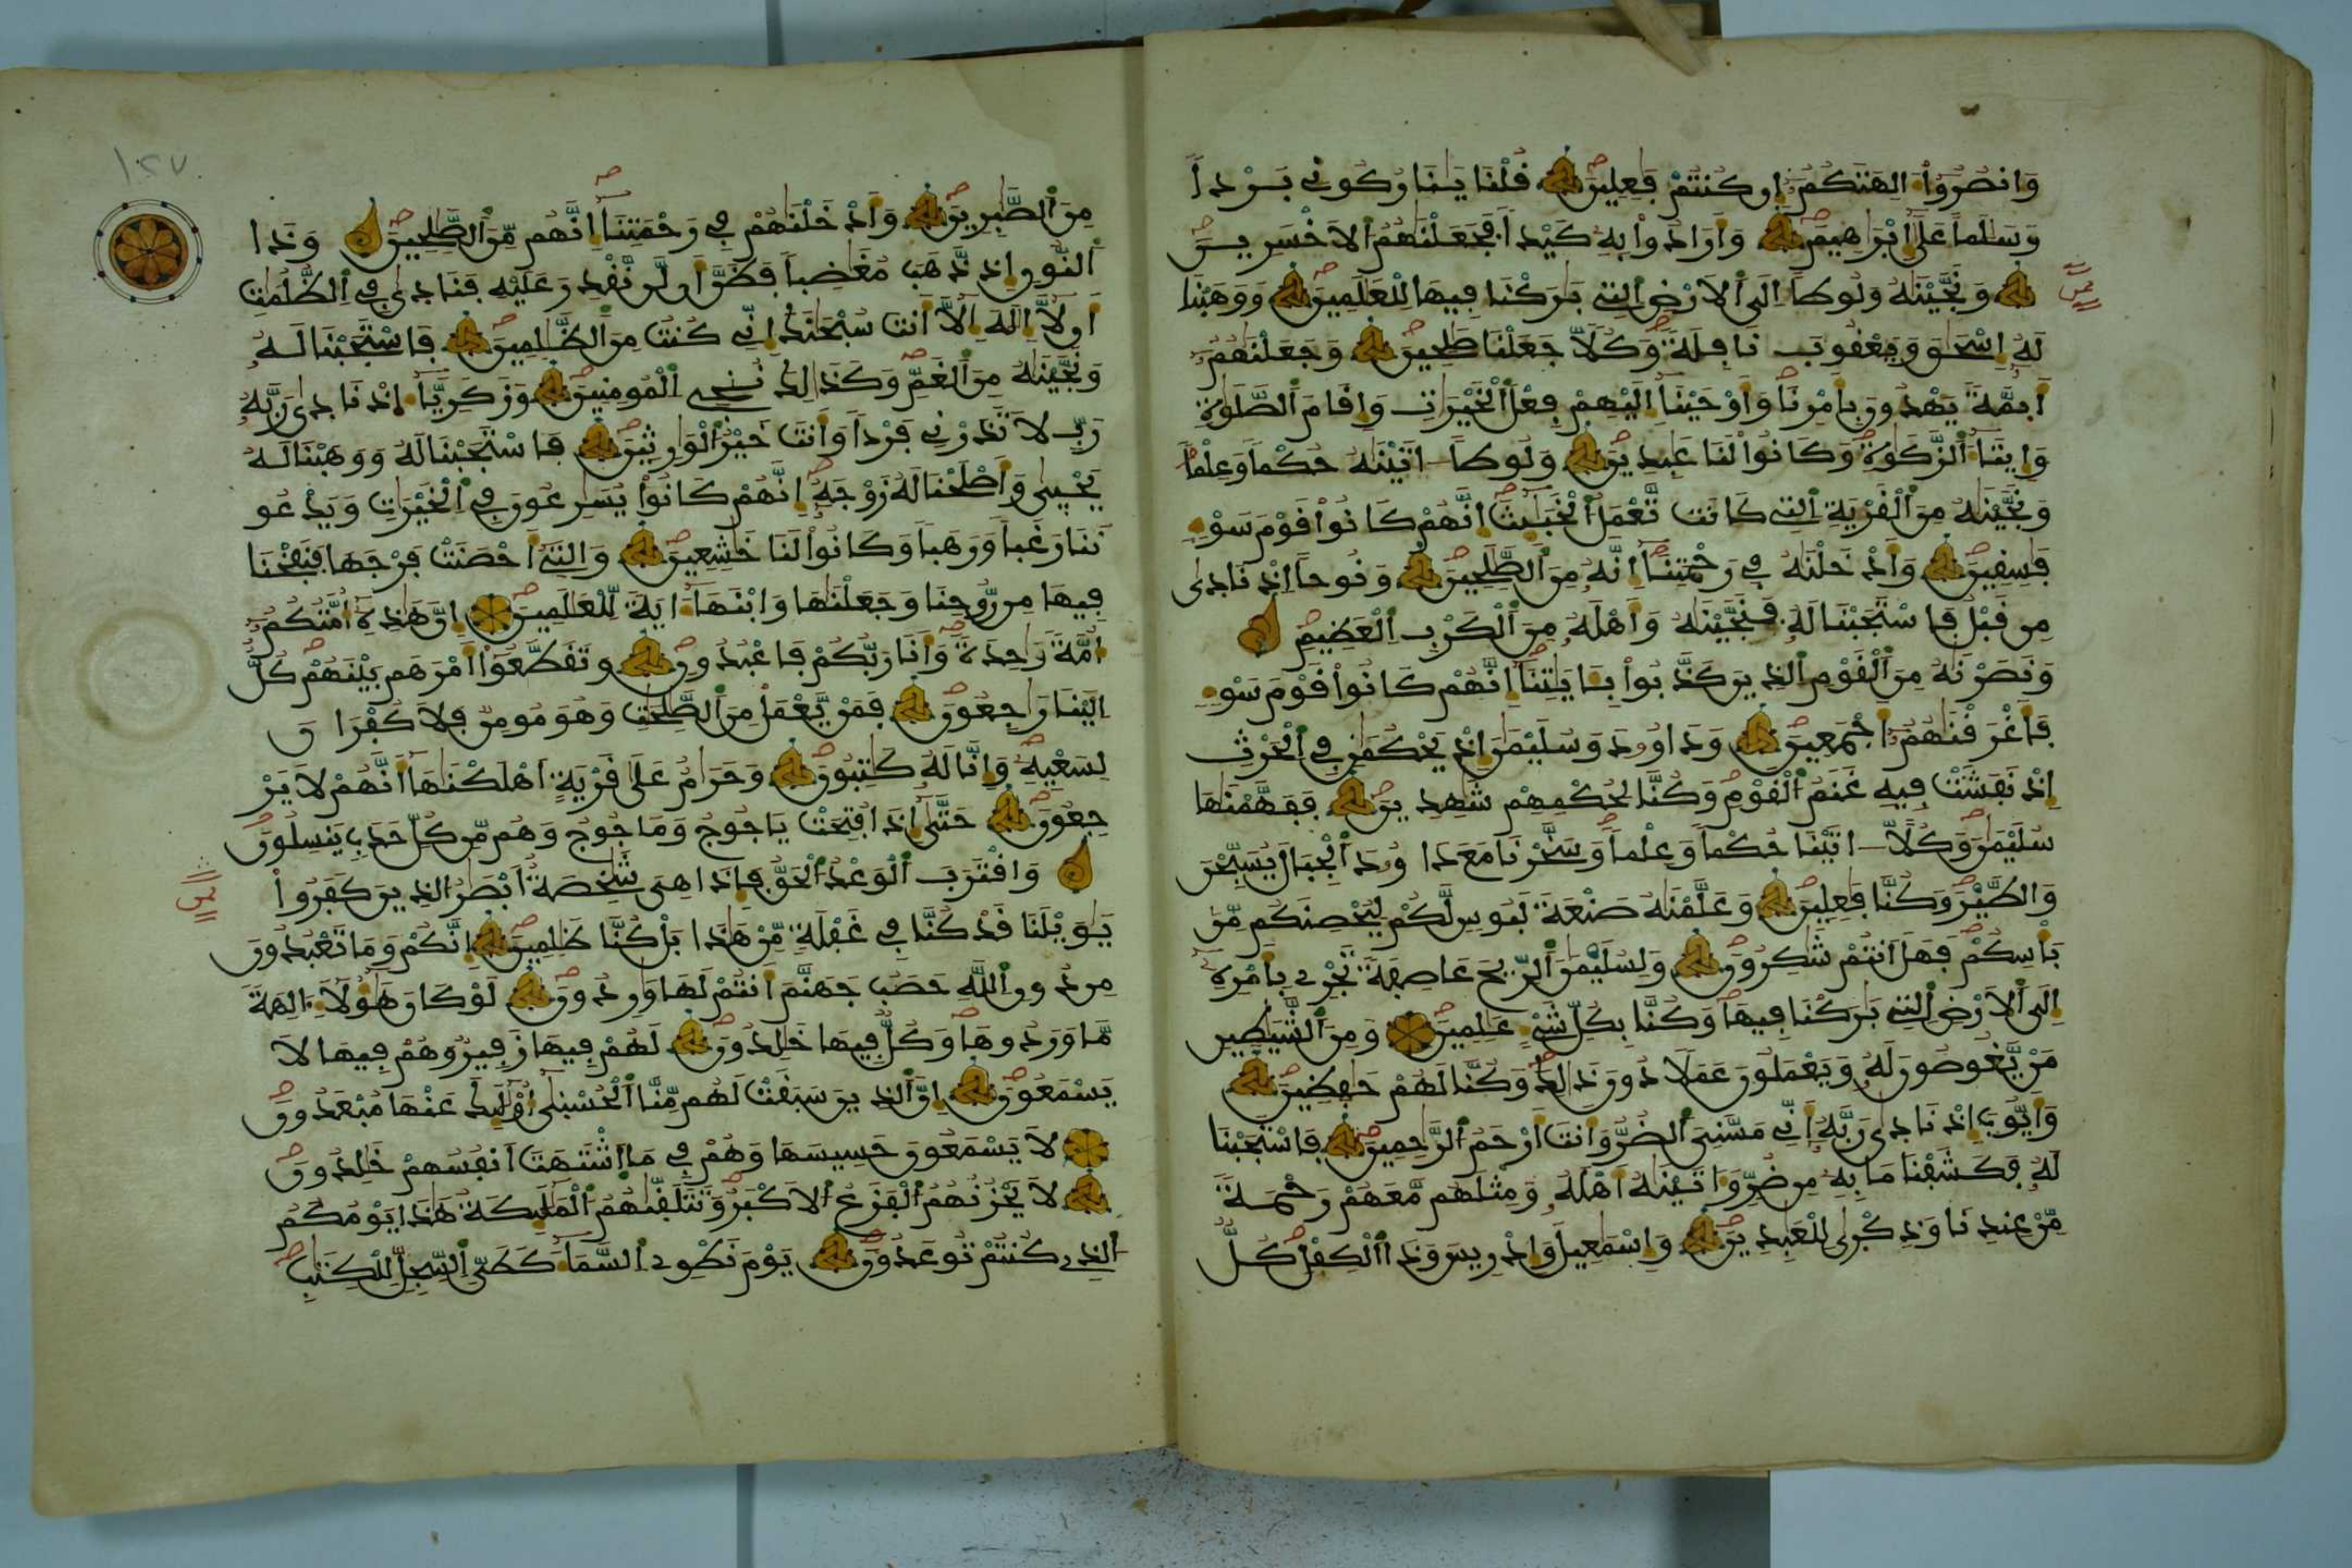 وَانصُرُوٓاْ ءَالِهَتَكُمُۥٓ إِن كُنتُمْ فَٰعِلِينَ قُلْنَا يَٰنَارُ كُونِي بَرْداٗ
وَسَلَٰماً عَلَىٰٓ إِبْرَٰهِيمَ وَأَرَادُواْ بِهِۦ كَيْداٗ فَجَعَلْنَٰهُمُ الَاخْسَرِينَ
وَنَجَّيْنَٰهُ وَلُوطاً اِلَى الَارْضِ التِے بَٰرَكْنَا فِيهَا لِلْعَٰلَمِينَ وَوَهَبْنَا
لَهُۥٓ إِسْحَٰقَ وَيَعْقُوبَ نَافِلَةٗ وَكُلّاٗ جَعَلْنَا صَٰلِحِينَ وَجَعَلْنَٰهُمُۥٓ
أَئِمَّةٗ يَهْدُونَ بِأَمْرِنَا وَأَوْحَيْنَآ إِلَيْهِمْ فِعْلَ الْخَيْرَٰتِ وَإِقَامَ الصَّلَوٰةِ
وَإِيتَآءَ الزَّكَوٰةِ وَكَانُواْ لَنَا عَٰبِدِينَ وَلُوطاً اٰتَيْنَٰهُ حُكْماٗ وَعِلْماٗ
وَنَجَّيْنَٰهُ مِنَ الْقَرْيَةِ التِے كَانَت تَّعْمَلُ الْخَبَٰٓئِثَ إِنَّهُمْ كَانُواْ قَوْمَ سَوْءٖ
فَٰسِقِينَ وَأَدْخَلْنَٰهُ فِے رَحْمَتِنَآ إِنَّهُۥ مِنَ الصَّٰلِحِينَ وَنُوحاً اِذْ نَادَىٰ
مِن قَبْلُ فَاسْتَجَبْنَا لَهُۥ فَنَجَّيْنَٰهُ وَأَهْلَهُۥ مِنَ الْكَرْبِ الْعَظِيمِ
وَنَصَرْنَٰهُ مِنَ الْقَوْمِ الذِينَ كَذَّبُواْ بِـَٔايَٰتِنَآ إِنَّهُمْ كَانُواْ قَوْمَ سَوْءٖ
فَأَغْرَقْنَٰهُمُۥٓ أَجْمَعِينَ وَدَاوُۥدَ وَسُلَيْمَٰنَ إِذْ يَحْكُمَٰنِ فِے الْحَرْثِ
إِذْ نَفَشَتْ فِيهِ غَنَمُ الْقَوْمِ وَكُنَّا لِحُكْمِهِمْ شَٰهِدِينَ فَفَهَّمْنَٰهَا
سُلَيْمَٰنَ وَكُلّاً اٰتَيْنَا حُكْماٗ وَعِلْماٗ وَسَخَّرْنَا مَعَ دَاوُۥدَ الْجِبَالَ يُسَبِّحْنَ
وَالطَّيْرَ وَكُنَّا فَٰعِلِينَ وَعَلَّمْنَٰهُ صَنْعَةَ لَبُوسٖ لَّكُمْ لِيُحْصِنَكُم مِّنۢ
بَأْسِكُمْ فَهَلَ اَنتُمْ شَٰكِرُونَ وَلِسُلَيْمَٰنَ الرِّيحَ عَاصِفَةٗ تَجْرِے بِأَمْرِهِۦٓ
إِلَى الَارْضِ التِے بَٰرَكْنَا فِيهَا وَكُنَّا بِكُلِّ شَےْءٍ عَٰلِمِينَ وَمِنَ الشَّيَٰطِينِ
مَنْ يَّغُوصُونَ لَهُۥ وَيَعْمَلُونَ عَمَلاٗ دُونَ ذَٰلِكَ وَكُنَّا لَهُمْ حَٰفِظِينَ
وَأَيُّوبَ إِذْ نَادَىٰ رَبَّهُۥٓ أَنِّے مَسَّنِيَ الضُّرُّ وَأَنتَ أَرْحَمُ الرَّٰحِمِينَ فَاسْتَجَبْنَا
لَهُۥ فَكَشَفْنَا مَا بِهِۦ مِن ضُرّٖ وَءَاتَيْنَٰهُ أَهْلَهُۥ وَمِثْلَهُم مَّعَهُمْ رَحْمَةٗ
مِّنْ عِندِنَا وَذِكْرَىٰ لِلْعَٰبِدِينَ وَإِسْمَٰعِيلَ وَإِدْرِيسَ وَذَا اَلْكِفْلِ كُلّٞ
١٤٧
مِّنَ الصَّٰبِرِينَ وَأَدْخَلْنَٰهُمْ فِے رَحْمَتِنَآ إِنَّهُم مِّنَ الصَّٰلِحِينَ وَذَا
اَلنُّونِ إِذ ذَّهَبَ مُغَٰضِباٗ فَظَنَّ أَن لَّن نَّقْدِرَ عَلَيْهِ فَنَادَىٰ فِے الظُّلُمَٰتِ
أَن لَّآ إِلَٰهَ إِلَّآ أَنتَ سُبْحَٰنَكَ إِنِّے كُنتُ مِنَ الظَّٰلِمِينَ فَاسْتَجَبْنَا لَهُۥ
وَنَجَّيْنَٰهُ مِنَ الْغَمِّ وَكَذَٰلِكَ نُۨجِے الْمُومِنِينَ وَزَكَرِيَّآءَ إِذْ نَادَىٰ رَبَّهُۥ
رَبِّ لَا تَذَرْنِے فَرْداٗ وَأَنتَ خَيْرُ الْوَٰرِثِينَ فَاسْتَجَبْنَا لَهُۥ وَوَهَبْنَا لَهُۥ
يَحْيَىٰ وَأَصْلَحْنَا لَهُۥ زَوْجَهُۥٓ إِنَّهُمْ كَانُواْ يُسَٰرِعُونَ فِے الْخَيْرَٰتِ وَيَدْعُو
نَنَا رَغَباٗ وَرَهَباٗ وَكَانُواْ لَنَا خَٰشِعِينَ وَالتِےٓ أَحْصَنَتْ فَرْجَهَا فَنَفَخْنَا
فِيهَا مِن رُّوحِنَا وَجَعَلْنَٰهَا وَابْنَهَآ ءَايَةٗ لِّلْعَٰلَمِينَ إِنَّ هَٰذِهِۦٓ أُمَّتُكُمُۥٓ
أُمَّةٗ وَٰحِدَةٗ وَأَنَا رَبُّكُمْ فَاعْبُدُونِ وَتَقَطَّعُوٓاْ أَمْرَهُم بَيْنَهُمْ كُلٌّ
اِلَيْنَا رَٰجِعُونَ فَمَنْ يَّعْمَلْ مِنَ الصَّٰلِحَٰتِ وَهُوَ مُومِنٞ فَلَا كُفْرَانَ
لِسَعْيِهِۦ وَإِنَّا لَهُۥ كَٰتِبُونَ وَحَرَٰمٌ عَلَىٰ قَرْيَةٍ اَهْلَكْنَٰهَآ أَنَّهُمْ لَا يَرْ
جِعُونَ حَتَّىٰٓ إِذَا فُتِحَتْ يَاجُوجُ وَمَاجُوجُ وَهُم مِّن كُلِّ حَدَبٖ يَنسِلُونَ
وَاقْتَرَبَ الْوَعْدُ الْحَقُّ فَإِذَا هِيَ شَٰخِصَةٌ اَبْصَٰرُ الذِينَ كَفَرُواْ
يَٰوَيْلَنَا قَدْ كُنَّا فِے غَفْلَةٖ مِّنْ هَٰذَا بَلْ كُنَّا ظَٰلِمِينَ إِنَّكُمْ وَمَا تَعْبُدُونَ
مِن دُونِ اللَّهِ حَصَبُ جَهَنَّمَ أَنتُمْ لَهَا وَٰرِدُونَ لَوْ كَانَ هَٰٓؤُلَآءِ ءَالِهَةٗ
مَّا وَرَدُوهَا وَكُلّٞ فِيهَا خَٰلِدُونَ لَهُمْ فِيهَا زَفِيرٞ وَهُمْ فِيهَا لَا
يَسْمَعُونَ إِنَّ الذِينَ سَبَقَتْ لَهُم مِّنَّا الْحُسْنَىٰٓ أُوْلَٰٓئِكَ عَنْهَا مُبْعَدُونَ
لَا يَسْمَعُونَ حَسِيسَهَا وَهُمْ فِے مَا اَشْتَهَتَ اَنفُسُهُمْ خَٰلِدُونَ
لَا يَحْزُنُهُمُ الْفَزَعُ الَاكْبَرُ وَتَتَلَقَّىٰهُمُ الْمَلَٰٓئِكَةُ هَٰذَا يَوْمُكُمُ
الذِے كُنتُمْ تُوعَدُونَ يَوْمَ نَطْوِے السَّمَآءَ كَطَيِّ السِّجِلِّ لِلْكِتَٰبِ